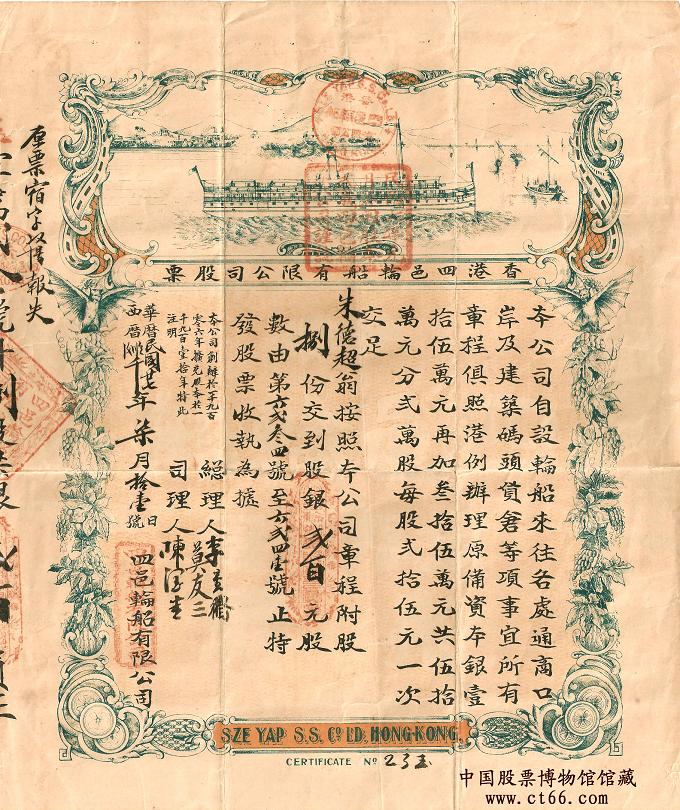 香港四邑輪船有限公司股票
本公司自設輪船來往各處通商口
岸及建築碼頭貨倉等項事宜所有
章程俱照港例辦理原備資本銀壹
拾伍萬元再加叁拾伍萬元共伍拾
萬元分弍萬股每股弍拾伍元一次
交足
朱德超翁按照本公司章程附股
捌份交到股銀弍百元股
數由第六弍叁四號至六弍四壹號止特
發股票收執為據
本公司創辦於一千九百
零六年擴充股本於一
千九百壹拾年特此
注明
總理人李
莫友三
司理人陳
華曆民國廿七年柒月拾壹日
西曆 號
四邑輪船有限公司
原票宿字 報失
SZE YAP S.S. Co. LD. HONG-KONG.
CERTIFICATE No 235
中国股票博物馆馆藏
www.ct66.com